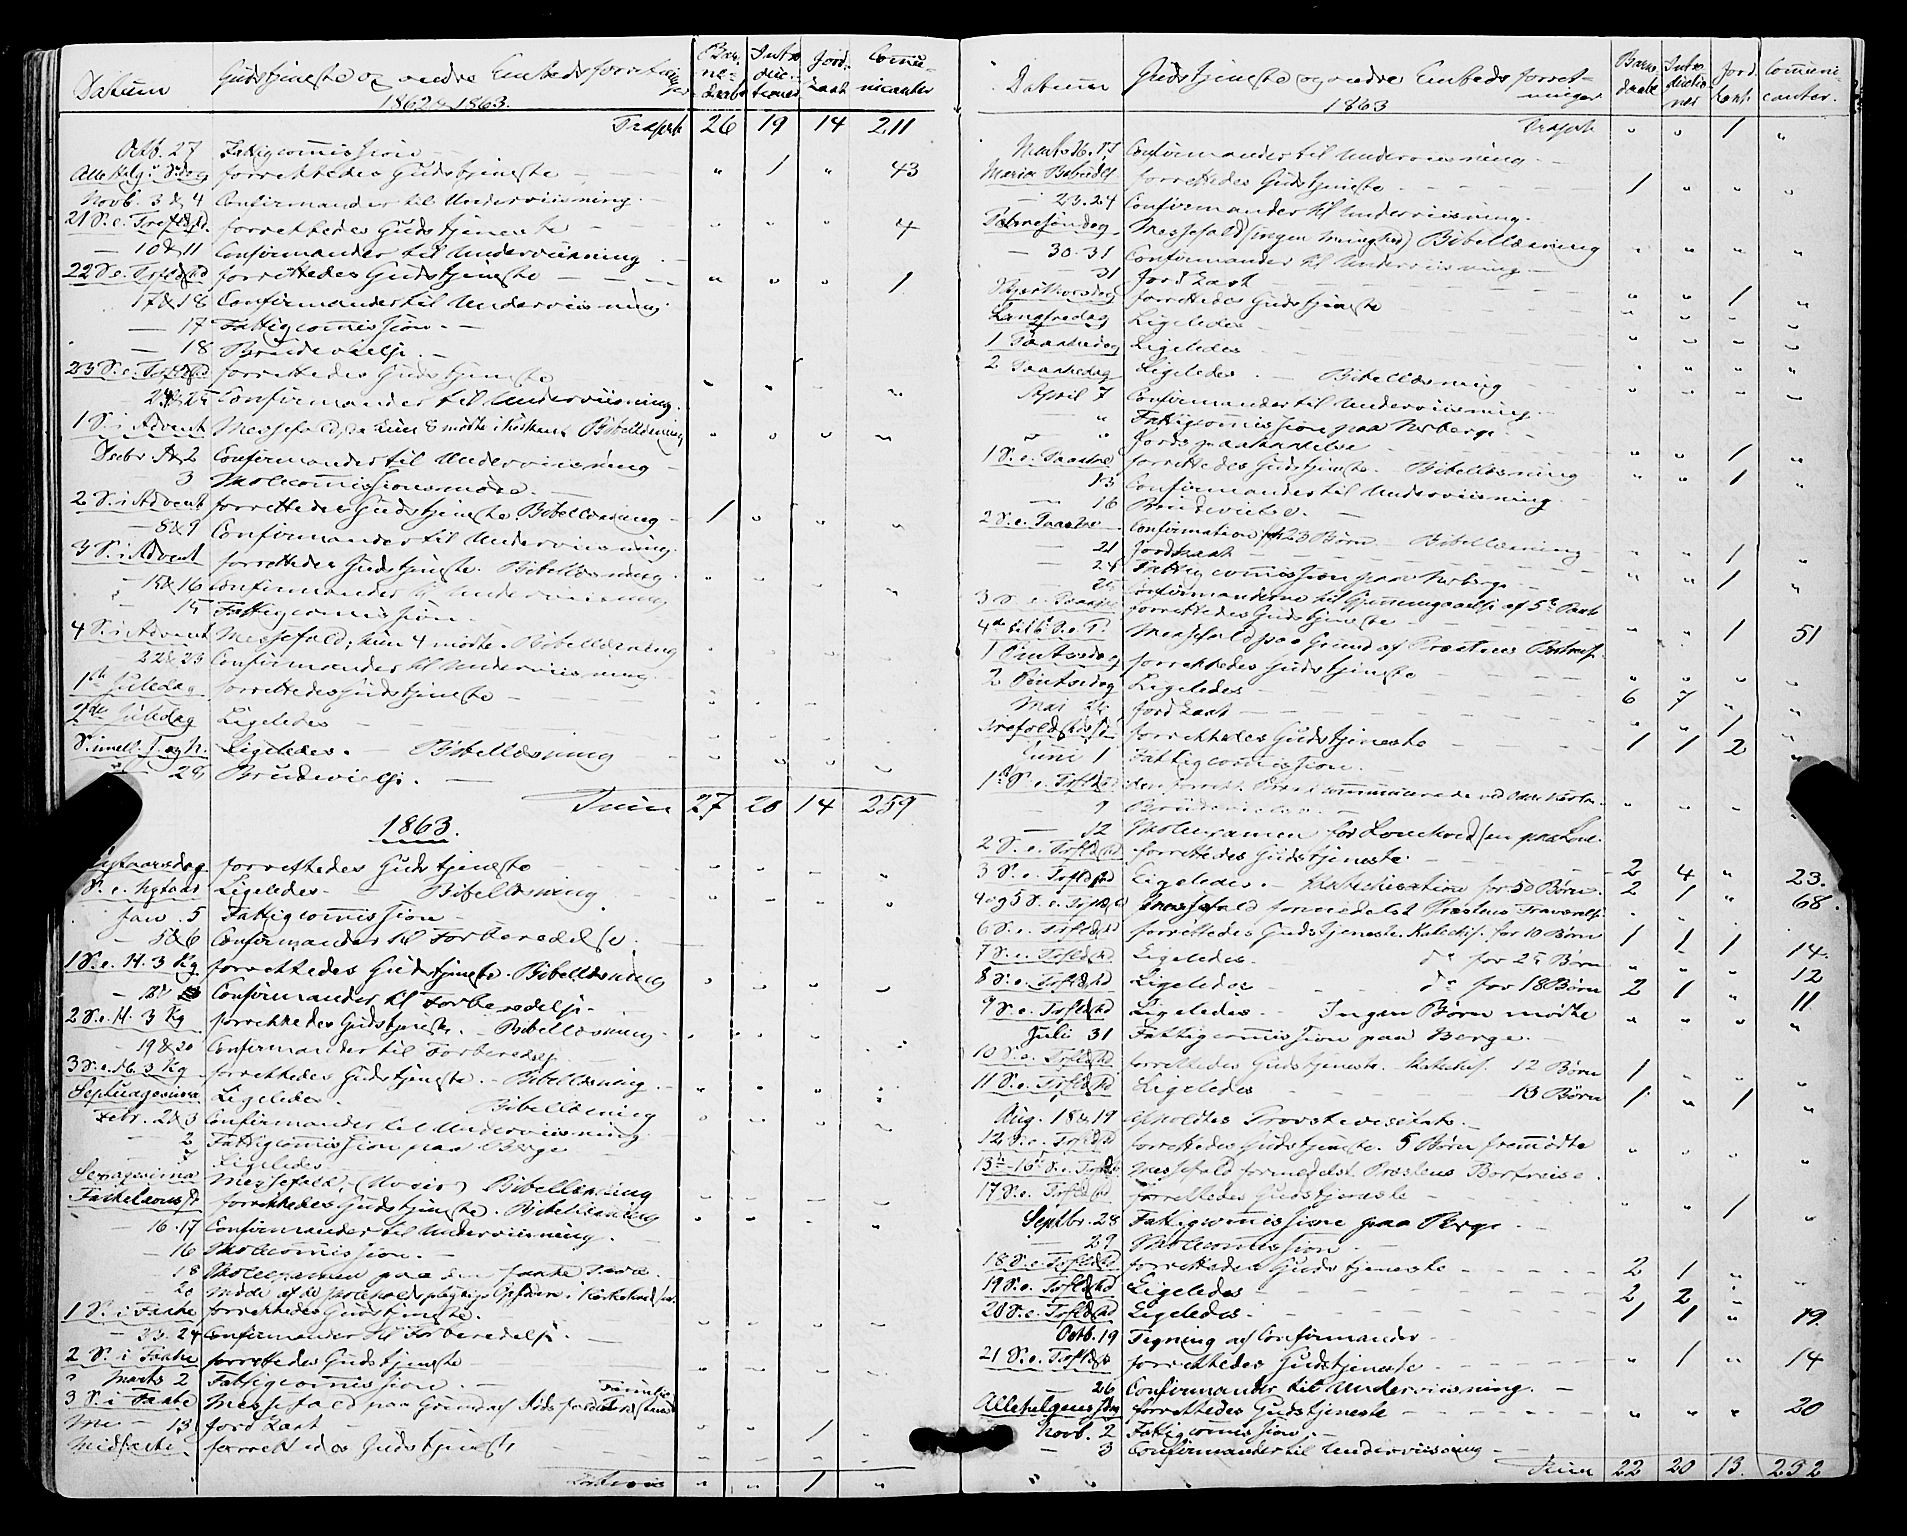 Datum Gudstjeneste og andre Embedsforretninger 1862 & 1863. Barnedaab Introductioner Jordkast Comunicanter
Trsprt 26 19 14 211
Octb. 27 Fattigcomission —
Alle Helg. Sdag forrettedes Gudstjeneste — " 1 " 43
Novb. 3 & 4 Confirmander til Underviisning. —
21 S. e. Trefold. forrettedes Gudstjeneste — " " " 4
— 10 & 11 Confirmander til Underviisning —
22 S. e. Trfldghd forrettedes Gudstjeneste — " " " 1
17 & 18 Confirmander til Underviisning
— 17 Fattigcomission. —
— 18 Brudevielse. —
23 S. e. Trfldghd forrettedes Gudstjeneste — " " " "
24 & 25 Confirmander til Underviisning.
1 S. i Advent Messefald, da kun 8 mødte i Kirken. Bibellæsning " " " "
Decbr 1 & 2 Confirmander til Underviisning —
3 Skolecomissionsmøde. —
2 S. i Advent forrettedes Gudstjeneste. Bibellæsning — 1 " " "
— 8 & 9 Confirmander til Underviisning.
3 S. i Advent forrettedes Gudstjeneste. Bibellæsning. " " " "
— 15 & 16 Confirmander til Underviisning
— 15 Fattigcomission. —
4 S. i Advent Messefald, kun 4 mødte. Bibellæsning " " " "
22 & 23 Confirmander til Underviisning.
1ste Juledag forrettedes Gudstjeneste — " " " "
2den Juledag Ligeledes — " " " "
S. imell. J. og N. Ligeledes. — Bibellæsning — " " " "
— 28 Brudevielse. —
Suma 27 20 14 259
1863.
Nytaarsdag forrettedes Gudstjeneste — " " " "
S. e. Nytaar Ligeledes — Bibellæsning — " " " "
Jan. 5 Fattigcomission —
— 5 & 6 Confirmander til Forberedelse.
1 S. e. H. 3 Kg forrettedes Gudstjeneste. Bibellæsning " " " "
— 12 & 13 Confirmander til Forberedelse.
2 S. e. H. 3 Kg forrettedes Gudstjeneste. — Bibellæsning. " " " "
— 19 & 20 Confirmander til Forberedelse.
3 S. e. H. 3 Kg forrettedes Gudstjeneste. — Bibellæsning — " " " "
Septuagesima Ligeledes. — Bibellæsning " " " "
Febr. 2 & 3 Confirmander til Underviisning.
— 2 Fattigcomission paa Berge —
Ligeledes
Sexagesima Messefald, Bibellæsning " " " "
Fastelavns S. forrettedes Gudstjeneste. Bibellæsning " " " "
— 16. 17 Confirmander til Underviisning. —
— 16 Skolecomission. —
— 18 Skoleexamen paa den faste Skole.
— 20 Møde af de
1 S. i Faste forrettedes Gudstjeneste. — " " " "
— 23. 24 Confirmander til Forberedelse. —
2 S. i Faste forrettedes Gudstjeneste — " " " "
Marts 2 Fattigcomission. —
3 S. i Faste Messefald paa Grund af " " " "
— 13 Jordkast — 1 "
Midfaste forrettedes Gudstjeneste — " " " "
Latus " " 1 "
Datum Gudstjeneste og andre Embedsforretninger 1863 Barnedaab Introductioner Jordkast Comunicanter.
Trsprt " " 1 "
Marts 16. 17 Confirmander til Underviisning. —
Mariæ Bebud. forrettedes Gudstjeneste — 1 " " "
— 23. 24 Confirmander til Underviisning.
Palmesøndag Messefald (ingen Menighed) Bibellæsning " " " "
— 30. 31 Confirmander til Underviisning —
— 31 Jordkast — " " 1 "
Skjærthorsdag forrettedes Gudstjeneste — " " " "
Langfredag Ligeledes — " " " "
1 Paaskedag Ligeledes — " " " "
2 Paaskedag Ligeledes. — Bibellæsning " " " "
April 7 Confirmander til Underviisning. —
" Fattigcomission paa Norberge. —
" Jordspaakastelse — " " 1 "
1 S. e. Paaske forrettedes Gudstjeneste. Bibellæsning " " 1 "
— 13 Confirmander til Underviisning. —
— 16 Brudevielse. —
2 S. e. Paaske Confirmation for 23 Børn — Bibellæsning " " 1 "
— 21 Jordkast — " " 1 "
— 24 Fattigcomission paa Norberge —
25 Confirmanderne til
3 S. e. Paaske forrettedes Gudstjeneste — " " 1 51
4de til 6 S. e. P. Messefald paa Grund af Præstens Bortreise.
1 Pintsedag forrettedes Gudstjeneste — " " " "
2 Pintsedag Ligeledes — 6 7 " "
Mai 26 Jordkast — " " 1 "
Trefoldigheds S. forrettedes Gudstjeneste — 1 1 2 "
Juni 1 Fattigcomission. —
1ste S. e. Trfldghd " " " "
9 Brudevielse. —
— 12 Skoleexamen for
2 S. e. Trfldghd forrettedes Gudstjeneste. — 2 4 " 23.
3 S. e. Trfldghd Ligeledes. — Katechisation for 50 Børn. 2 1 " 68.
4 og 5 S. e. Trfldghd Messefald formedelst Præstens Fraværelse. " " "
6 S. e. Trfldghd forrettedes Gudstjeneste. Katechis. for 10 Børn 1 1 1 14.
7 S. e. Trfldghd Ligeledes. do for 25 Børn " " " 12
8 S. e. Trfldghd Ligeledes — do for 18 Børn 2 1 " 11.
9 S. e. Trfldghd Ligeledes. — Ingen Børn mødte " " " "
Juli 31 Fattigcomission paa Berge. —
10 S. e. Trfldghd forrettedes Gudstjeneste. Katechis. 12 Børn 1 " " "
11 S. e. Trfldghd Ligeledes — 13 Børn 1 " 1 "
Aug. 18 & 19 Afholdtes Provstevisitats. —
12 S. e. Trfldghd forrettedes Gudstjeneste. 5 Børn fremmødte " " " "
13de-16de S. e. Trfldghd Messefald formedelst Præstens Bortreise.
17 S. e. Trfldghd forrettedes Gudstjeneste — " " 1 "
Septbr. 28 Fattigcomission paa Berge. —
— 29 Skolecomission. —
18 S. e. Trfldghd forrettedes Gudstjeneste — 2 1 " "
19 S. e. Trfldghd Ligeledes — 2 2 " "
20 S. e. Trfldghd Ligeledes. — 1 1 " 19.
Octb. 19 Tegning af Confirmander —
21 S. e. Trfldghd forrettedes Gudstjeneste — " 1 " 14
— 26 Confirmander til Underviisning. —
Allehelgens Sdag forrettedes Gudstjeneste — " " " 20
Novb. 2 Fattigcomission. —
— 3 Confirmander til Underviisning —
Suma 22 20 13. 232